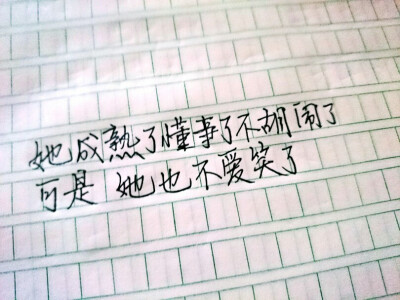 她成熟了懂事了不胡闹了
可是 她也不爱笑了